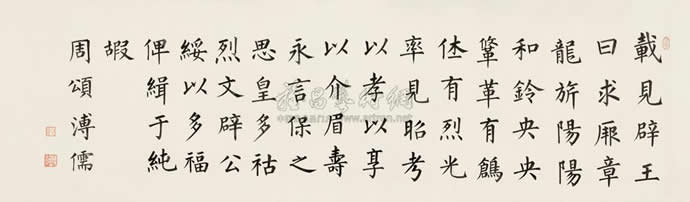 載見辟王
曰求厥章
龍旂陽陽
和鈴央央
鞗革有鶬
休有烈光
率見昭考
以孝以享
以介眉壽
永言保之
思皇多祜
烈文辟公
綏以多福
俾緝于純
嘏
周頌溥儒